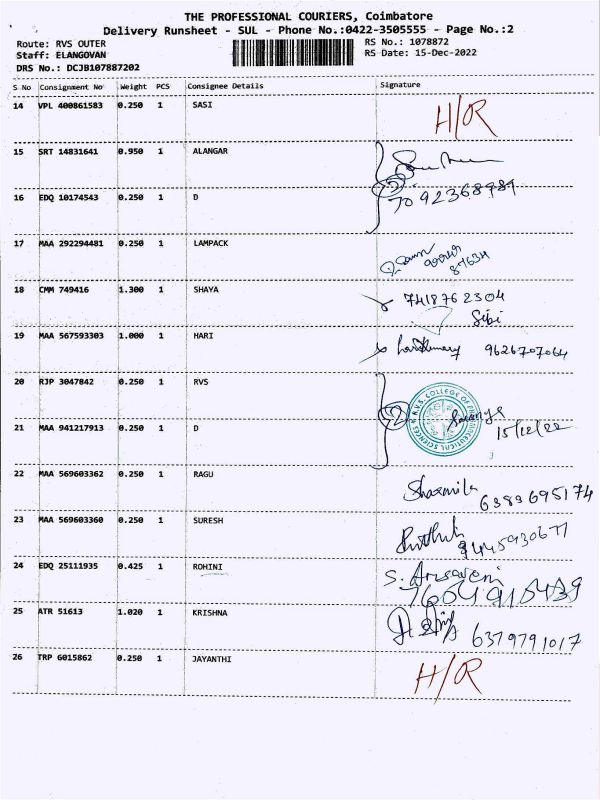 THE PROFESSIONAL COURIERS, Coimbatore
Delivery Runsheet - SUL - Phone No.:0422-3505555 - Page No.:2
Route: RVS OUTER RS No.: 1078872
Staff: ELANGOVAN RS Date: 15-Dec-2022
DRS No.: DCJB107887202
S No Consignment No Weight PCS Consignee Details Signature
14 VPL 400861583 0.250 1 SASI H/R
15 SRT 14831641 0.950 1 ALANGAR
16 EDQ 10174543 0.250 1 D 7092368989
17 MAA 292294481 0.250 1 LAMPACK
18 CMM 749416 1.300 1 SHAYA 7418762304
Sibi
19 MAA 567593303 1.000 1 HARI 9626707064
20 RJP 3047842 0.250 1 RVS
21 MAA 941217913 0.250 1 D 15/12/22
22 MAA 569603362 0.250 1 RAGU Sharmila 6383695174
23 MAA 569603360 0.250 1 SURESH
24 EDQ 25111935 0.425 1 ROHINI
25 ATR 51613 1.020 1 KRISHNA 6379791017
26 TRP 6015862 0.250 1 JAYANTHI H/R